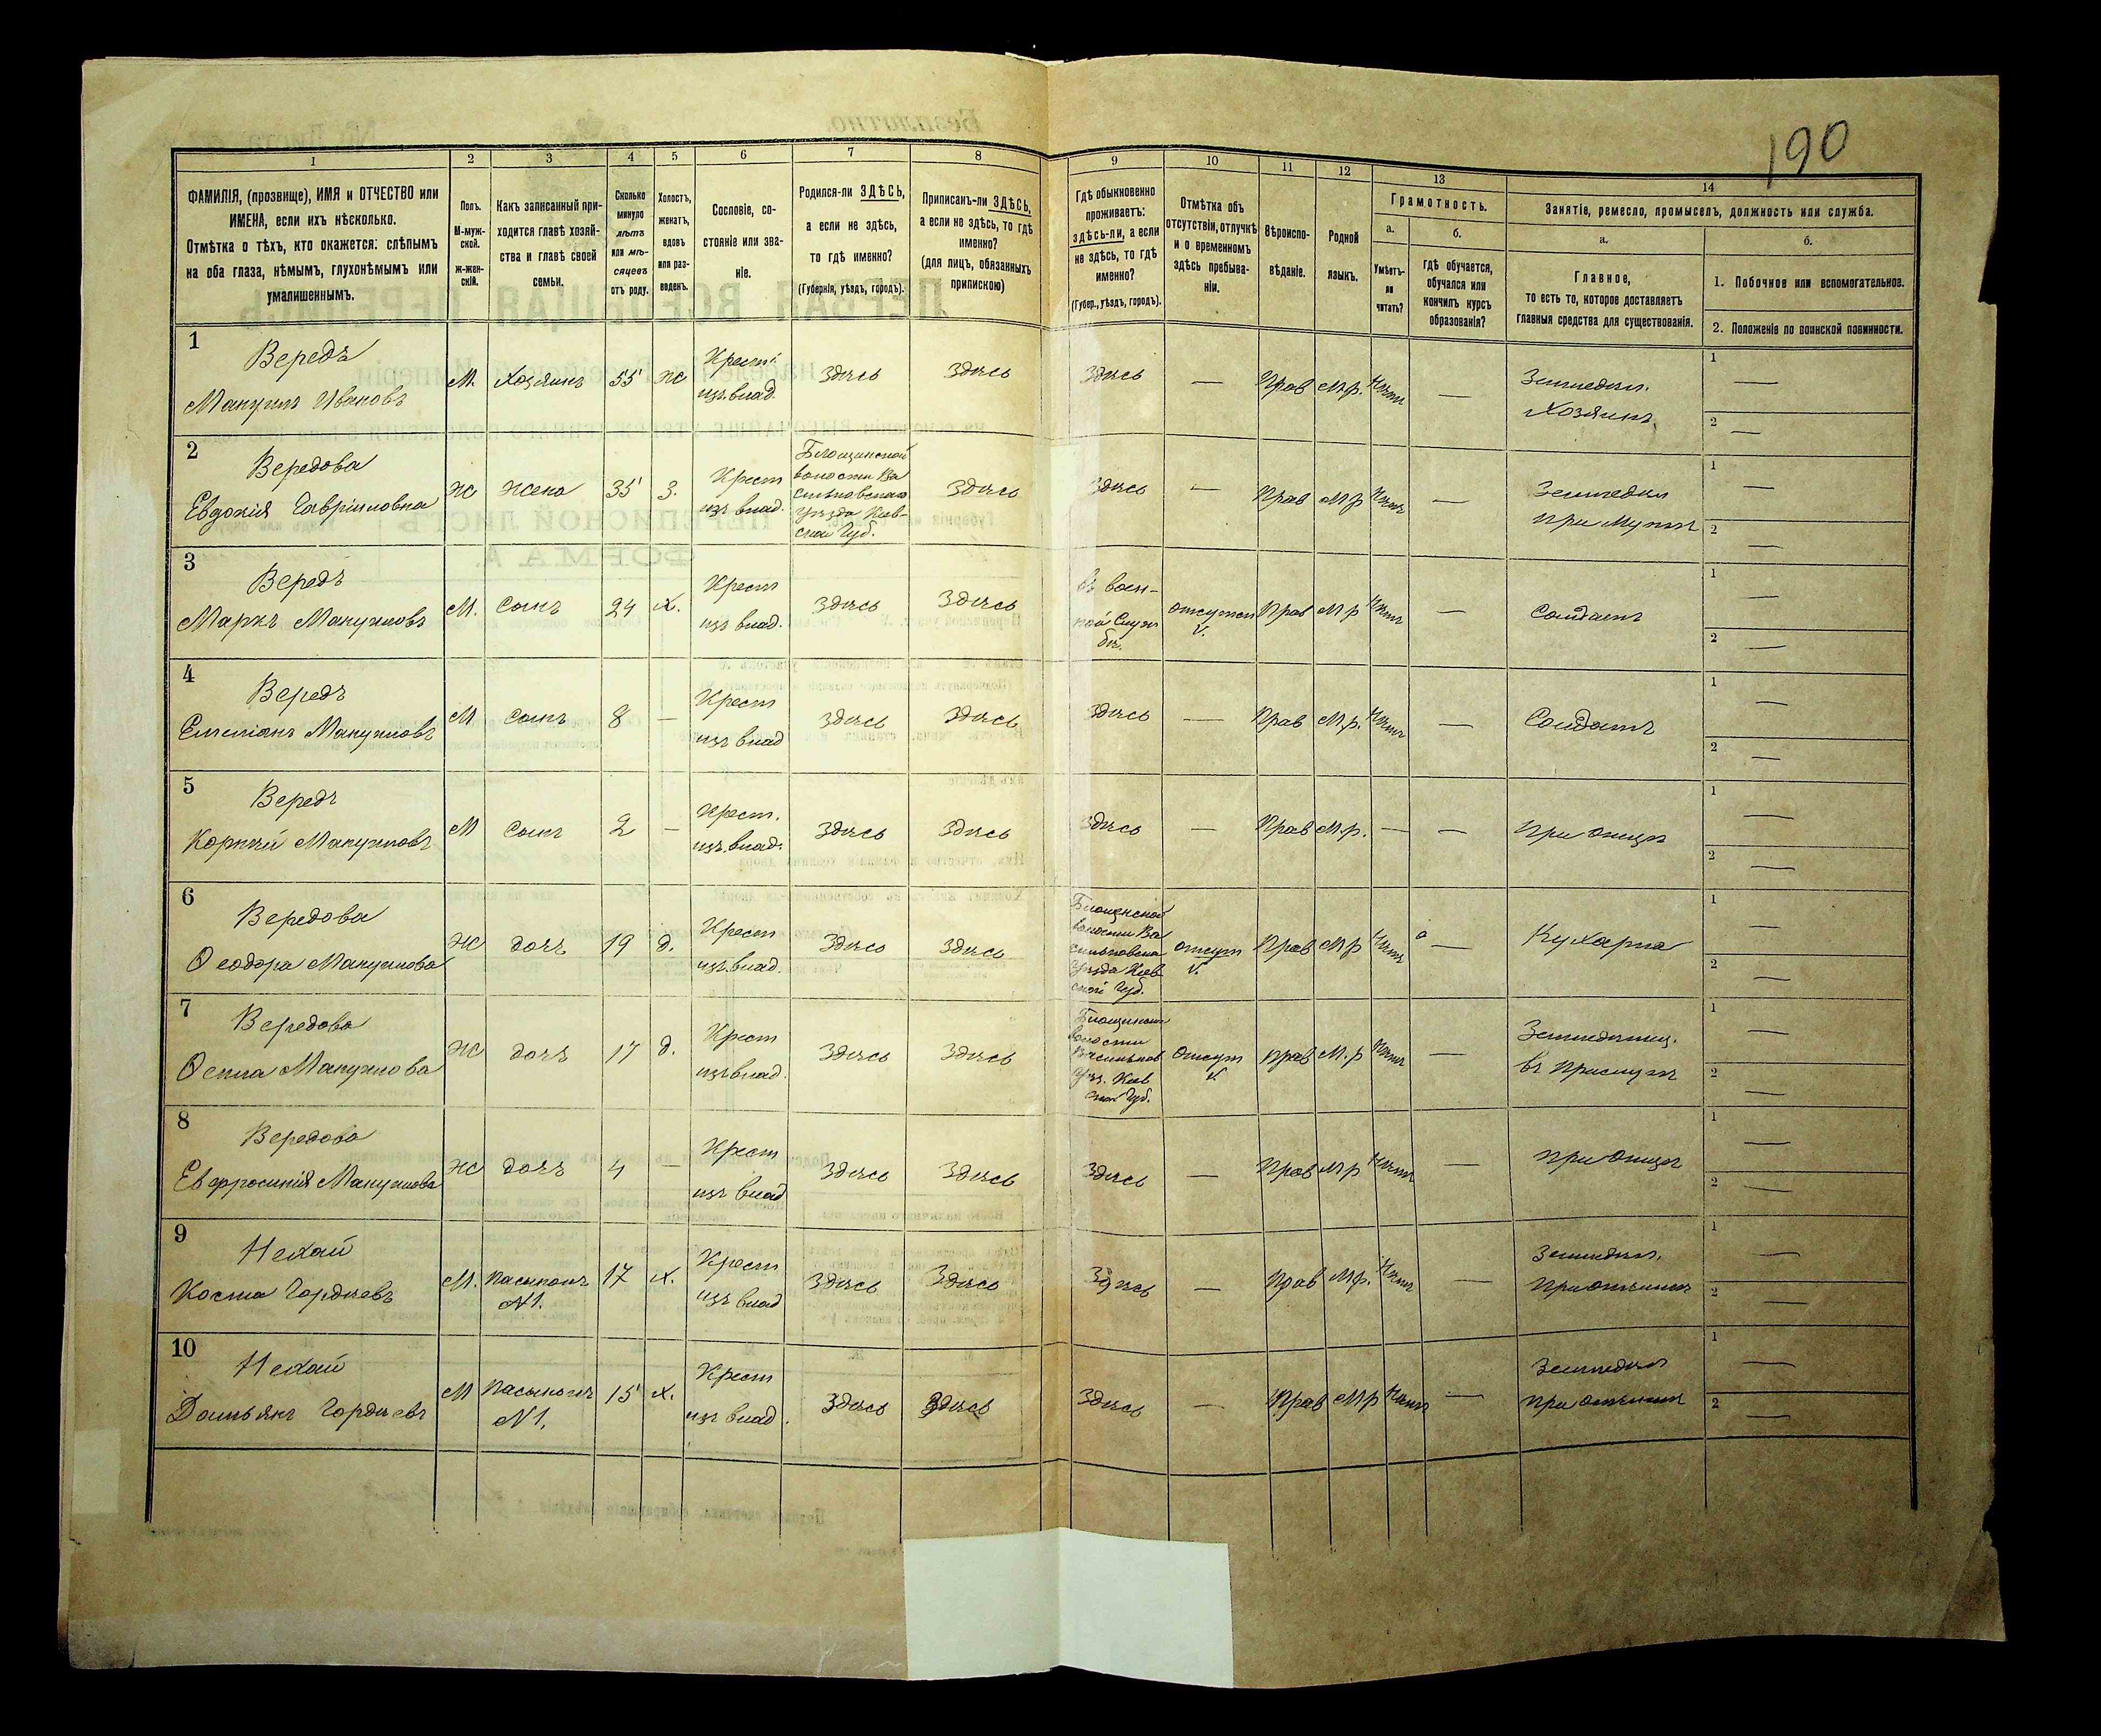 190
1 2 3 4 5 6 7 8 9 10 11 12 13 14
ФАМИЛІЯ, (прозвище), ИМЯ и ОТЧЕСТВО или
ИМЕНА, если ихъ нѣсколько.
Отмѣтка о тѣхъ, кто окажется: слѣпымъ
на оба глаза, нѣмымъ, глухонѣмымъ или
умалишеннымъ.
Полъ.
М-муж-
ской.
ж-жен-
скій.
Какъ записанный при-
ходится главѣ хозяй-
ства и главѣ своей
семьи.
Сколько
минуло
лѣтъ
или мѣ-
сяцевъ
отъ роду.
Холостъ,
женатъ,
вдовъ
или раз-
веденъ.
Сословіе, со-
стояніе или зва-
ніе.
Родился-ли ЗДѢСЬ,
а если не здѣсь,
то гдѣ именно?
(Губернія, уѣздъ, городъ).
Приписанъ-ли ЗДѢСЬ,
а если не здѣсь, то гдѣ
именно?
(для лицъ, обязанныхъ
припискою)
Гдѣ обыкновенно
проживаетъ:
здѣсь-ли, а если
не здѣсь, то гдѣ
именно?
(Губер., уѣздъ, городъ).
Отмѣтка объ
отсутствіи, отлучкѣ
и о временномъ
здѣсь пребыва-
ніи.
Вѣроиспо-
вѣданіе.
Родной
языкъ.
Грамотность.
а.
Умѣетъ-
ли
читать?
б.
Гдѣ обучается,
обучался или
кончилъ курсъ
образованія?
Занятіе, ремесло, промыселъ, должность или служба.
а.
Главное,
то есть то, которое доставляетъ
главныя средства для существованія.
б.
1. Побочное или вспомогательное.
2. Положеніе по воинской повинности.
1
Вередъ
Мануилъ Ивановъ
М. Хозяинъ 55 ж
Крест.
изъ влад.
Здѣсь Здѣсь Здѣсь — Прав М.р. Нѣтъ —
Земледѣл.
Хозяинъ
1 —
2 —
2
Вередова
Евдокія Гавріиловна
Ж Жена 35 З.
Крест
изъ влад.
волости Ва
сильковскаго
уѣзда Кіев-
ской Губ.
Здѣсь Здѣсь — Прав М р Нѣтъ —
Земледѣл
при Мужѣ
1 —
2 —
3
Вередъ
Маркъ Мануиловъ
М. Сынъ 24 х.
Крест
изъ влад.
Здѣсь Здѣсь
въ воен-
ной Служ
бѣ.
отсутст
V.
Прав М р Нѣтъ —
Солдатъ
1 —
2 —
4
Вередъ
Емеліанъ Мануиловъ
М Сынъ 8 —
Крест
изъ влад
Здѣсь Здѣсь Здѣсь — Прав М.р. Нѣтъ —
Солдатъ
1 —
2 —
5
Вередъ
Корній Мануиловъ
М Сынъ 2 —
Крест.
изъ влад.
Здѣсь Здѣсь Здѣсь — Прав М.р. — —
При Отцѣ
1 —
2 —
6
Вередова
Ѳеодора Мануилова
Ж дочь 19 д.
Крест
изъ влад.
Здѣсь Здѣсь
волости Ва
сильковска
уѣзда Кіев
ской Губ.
отсут
V.
Прав М р Нѣтъ —
Кухарка
1 —
2 —
7
Вередова
Мануилова
Ж дочь 17 д.
Крест
изъ влад.
Здѣсь Здѣсь
волости
Васильков
Уѣз. Кіев
ской Губ.
Отсут
V.
Прав М.р Нѣтъ —
въ Прислугѣ
1 —
2 —
8
Вередова
Евфросинія Мануилова
Ж дочь 4 —
Крест
изъ влад
Здѣсь Здѣсь Здѣсь — Прав М р Нѣтъ —
При Отцѣ
1 —
2 —
9
Нехай
Косма Гордѣевъ
М. Пасынокъ 17 х.
№1.
Крест
изъ влад
Здѣсь Здѣсь Здѣсь — Прав М р. Нѣтъ —
Земледѣл.
При Отчимѣ
1 —
2 —
10
Нехай
Домьянъ Гордѣевъ
М Пасынокъ 15 х.
№1.
Крест
изъ влад.
Здѣсь Здѣсь Здѣсь — Прав М р Нѣтъ —
Земледѣл
при Отчимѣ
1 —
2 —